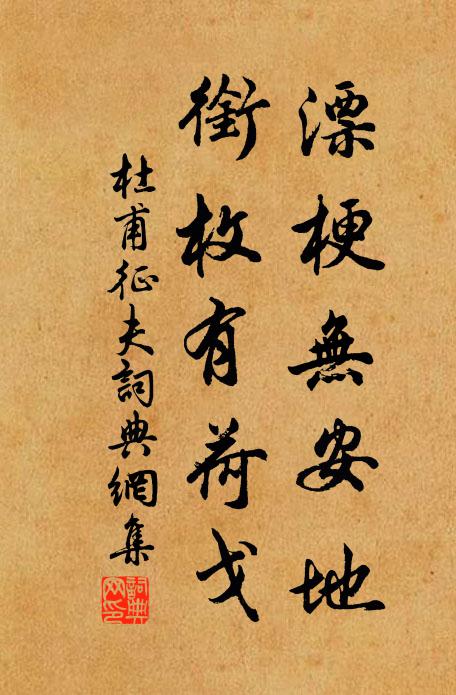 漂梗無安地
銜枚有荷戈
杜甫征夫詞典網集
詞典網印